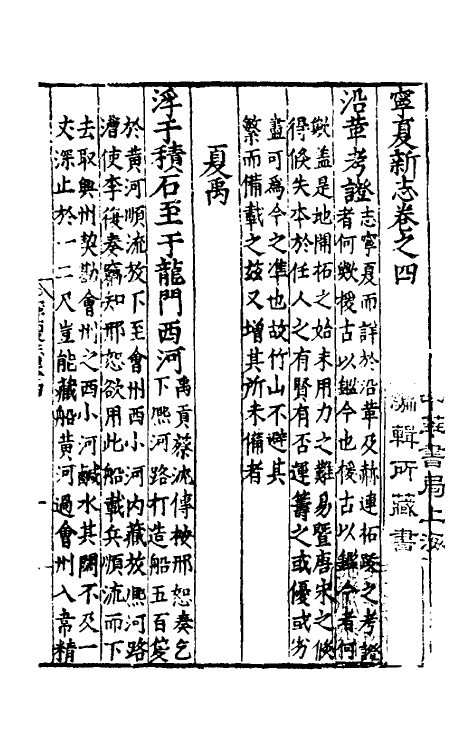 寧夏新志卷之四
沿革考證
志寧夏而詳於沿革及赫連拓跋之考證
者何欤援古以鑑今也後古以鑑今者何
歟盖是地開拓之始末用力之難易暨唐宋之
得失本於任人之有賢有否運籌之或優或劣
盡可爲今之準也故竹山不避其
繁而備載之兹又增其所未備者
夏禹
浮于積石至于龍門西河
禹貢蔡沈傳按邢恕奏乞
下熈河路打造船五百隻
於黄河順流放下至會州西小河内藏放熈河路
漕使李復奏竊知邢恕欲用此船載兵順流而下
去取興州契勘會州之西小河鹹水其闊不及一
丈深止於一二尺豈能藏船黄河過會州入韋精
中華書局上海
編輯所藏書